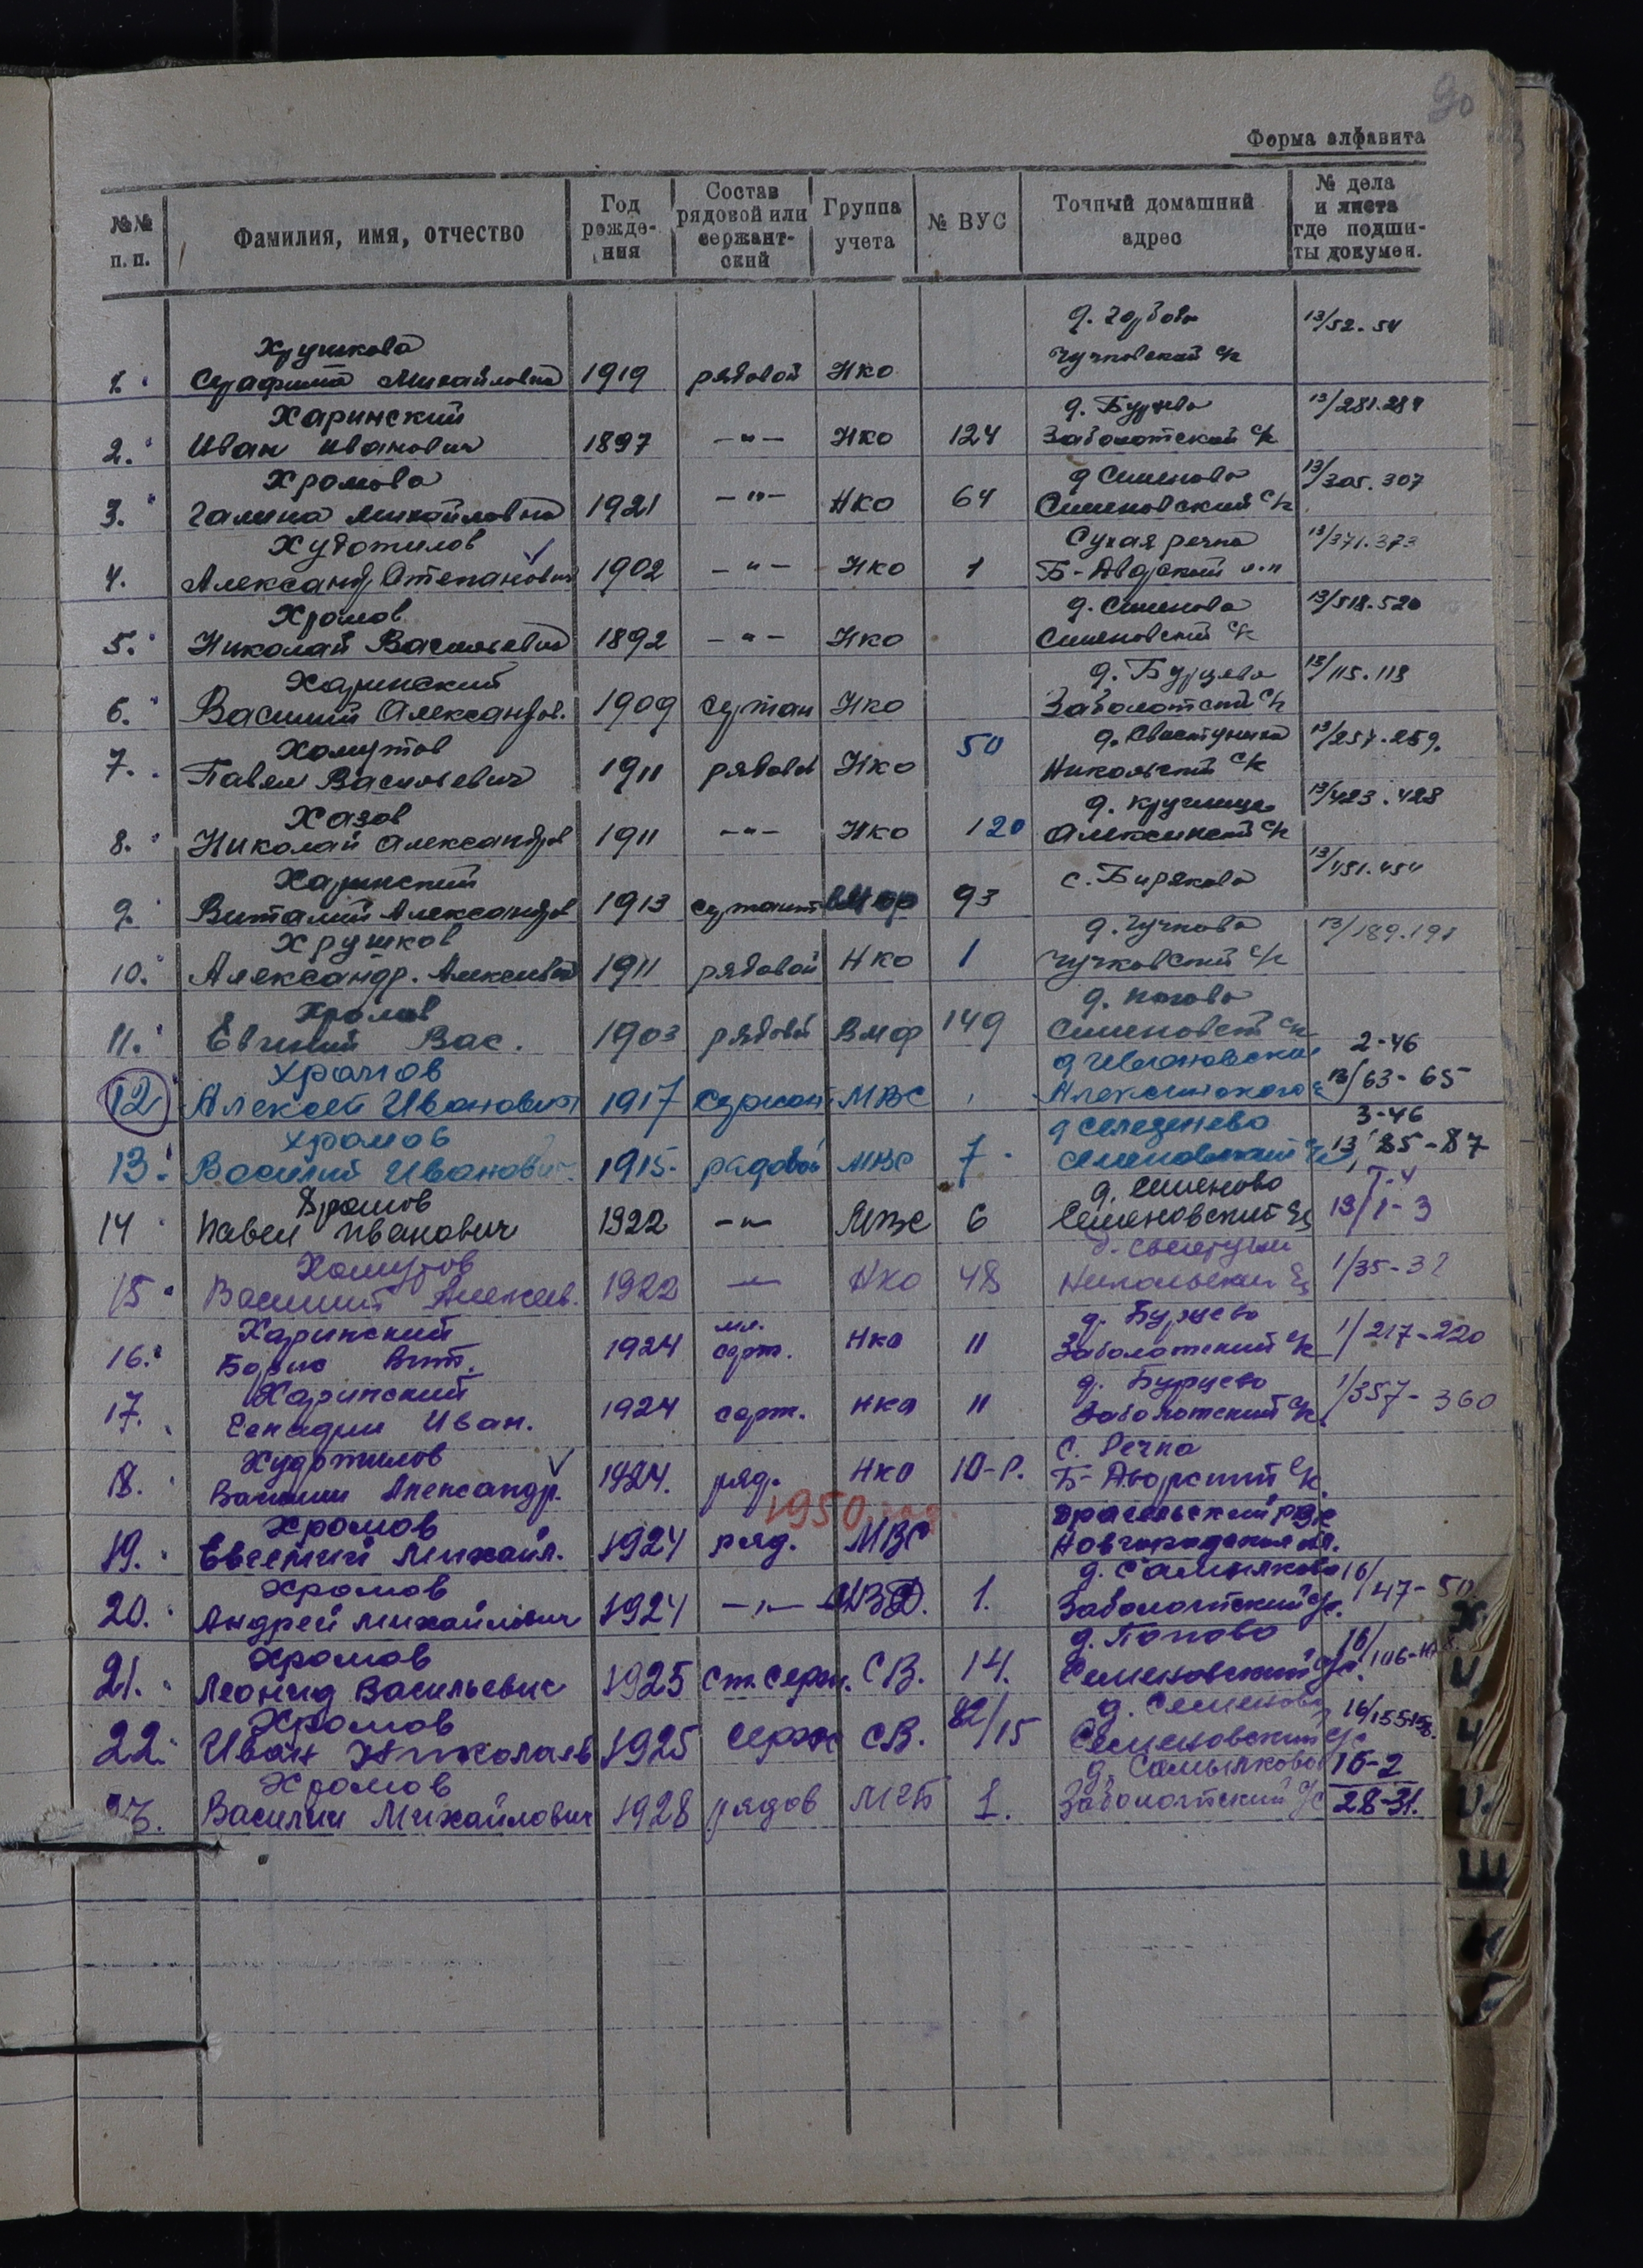 90
Форма алфавита
№№ п. п.
Фамилия, имя, отчество
Год рожде-ния
Состав рядовой или сержант-ский
Группа учета
№ ВУС
Точный домашний адрес
№ дела и листа где подши-ты докумен.
Хрушкова д. 13/52-54
1. Серафима Михайловна 1919 рядовой НКО Чучковский с/с
Харинский д. Бурцево 13/281.284
2. Иван Иванович 1897 —"— НКО 124 Заболотский с/с
Хромова д Семеново 13/305.307
3. Галина Михайловна 1921 —"— НКО 64 Семеновский с/с
Худотилов Сухая речка 13/371.373
4. Александр Степанович 1902 —"— НКО 1 Б-Дворский
Хромов д. Семенова 13/518.520
5. Николай Васильевич 1892 —"— НКО Семеновский с/с
Харинский д. Бурцево 13/115.118
6. Василий Александров. 1909 сержан НКО Заболотский с/с
Хомутов 50 13/257-259.
7. Павел Васильевич 1911 рядовой НКО Никольский с/с
Хазов д. Круглица 13/423.428
8. Николай Александров 1911 —"— НКО 120 Алексинский с/с
Харинский с. Биряково 13/451.454
9. Виталий Александров 1913 сержант ВМФ 93
Хрушков д. Чучково 13/189.191
10. Александр. Алексеевич 1911 рядовой НКО 1 Чучковский с/с
Хромов д.
11. Евгений Вас. 1903 рядовой ВМФ 149 Семеновский с/с
Хромов д Ивановская 2-46
12 Алексей Иванович 1917 сержант МВС Алексинского 13/63-65
Хромов д Селезенево 3-46
13. Василий Иванович 1915 рядовой МВС 7 Семеновский с/с 13/85-87
Хромов д. Семеново Т.4
14 Павел Иванович 1922 —"— МВС 6 Семеновский с/с 13/1-3
Хомутов
15 Василий Алексеев. 1922 —"— НКО 48 Никольский с/с 1/35-3
Харинский мл. д. Бурцево 1/217-220
16. Борис Вит. 1924 серж. НКО 11 Заболотский с/с
Харинский д. Бурцево 1/357-360
17. Генадии Иван. 1924 серж. НКО 11 Заболотский с/с
Худотилов С. Речка
18. Василии Александр. 1924. ряд. НКО 10-Р. Б-Дворский с/с
1950 год.
Хромов
19. Евгении Михайл. 1924 ряд. МВС Новгородская обл.
Хромов д. Самылково 16/47-50
20. Андреи Михайлович 1924 —"— 1. Заболотский с/с.
Хромов д. Попово 16/106-
21. Леонид Васильевич 1925 Ст. серж. СВ. 14. Семеновский с/с.
Хромов 82/15 д. Семеново 16/155-158.
22. Иван Николаев 1925 серж СВ. Семеновский с/с
Хромов д. Самылково 16-2
23. Василии Михайлович 1928 рядов МГБ 1. Заболотский с/с 28-31.
Х
Ц
Ч
Ш